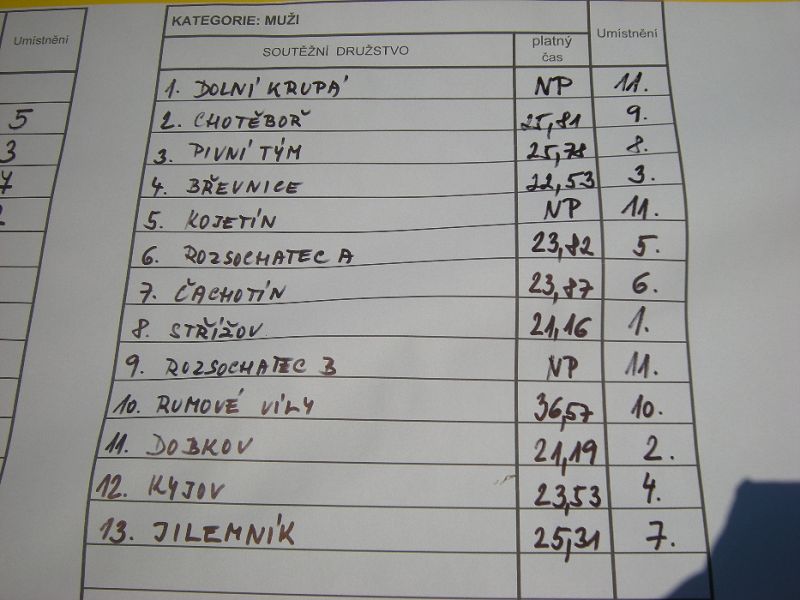 Umístnění
5
3
7
KATEGORIE: MUŽI
SOUTĚŽNÍ DRUŽSTVO platný čas Umístnění
1. DOLNÍ KRUPÁ NP 11.
2. CHOTĚBOŘ 25,81 9.
3. PIVNÍ TÝM 25,78 8.
4. BŘEVNICE 22,53 3.
5. KOJETÍN NP 11.
6. ROZSOCHATEC A 23,82 5.
7. ČACHOTÍN 23,87 6.
8. STŘÍŽOV 21,16 1.
9. ROZSOCHATEC B NP 11.
10. RUMOVÉ VÍLY 36,57 10.
11. DOBKOV 21,19 2.
12. KYJOV 23,53 4.
13. JILEMNÍK 25,31 7.